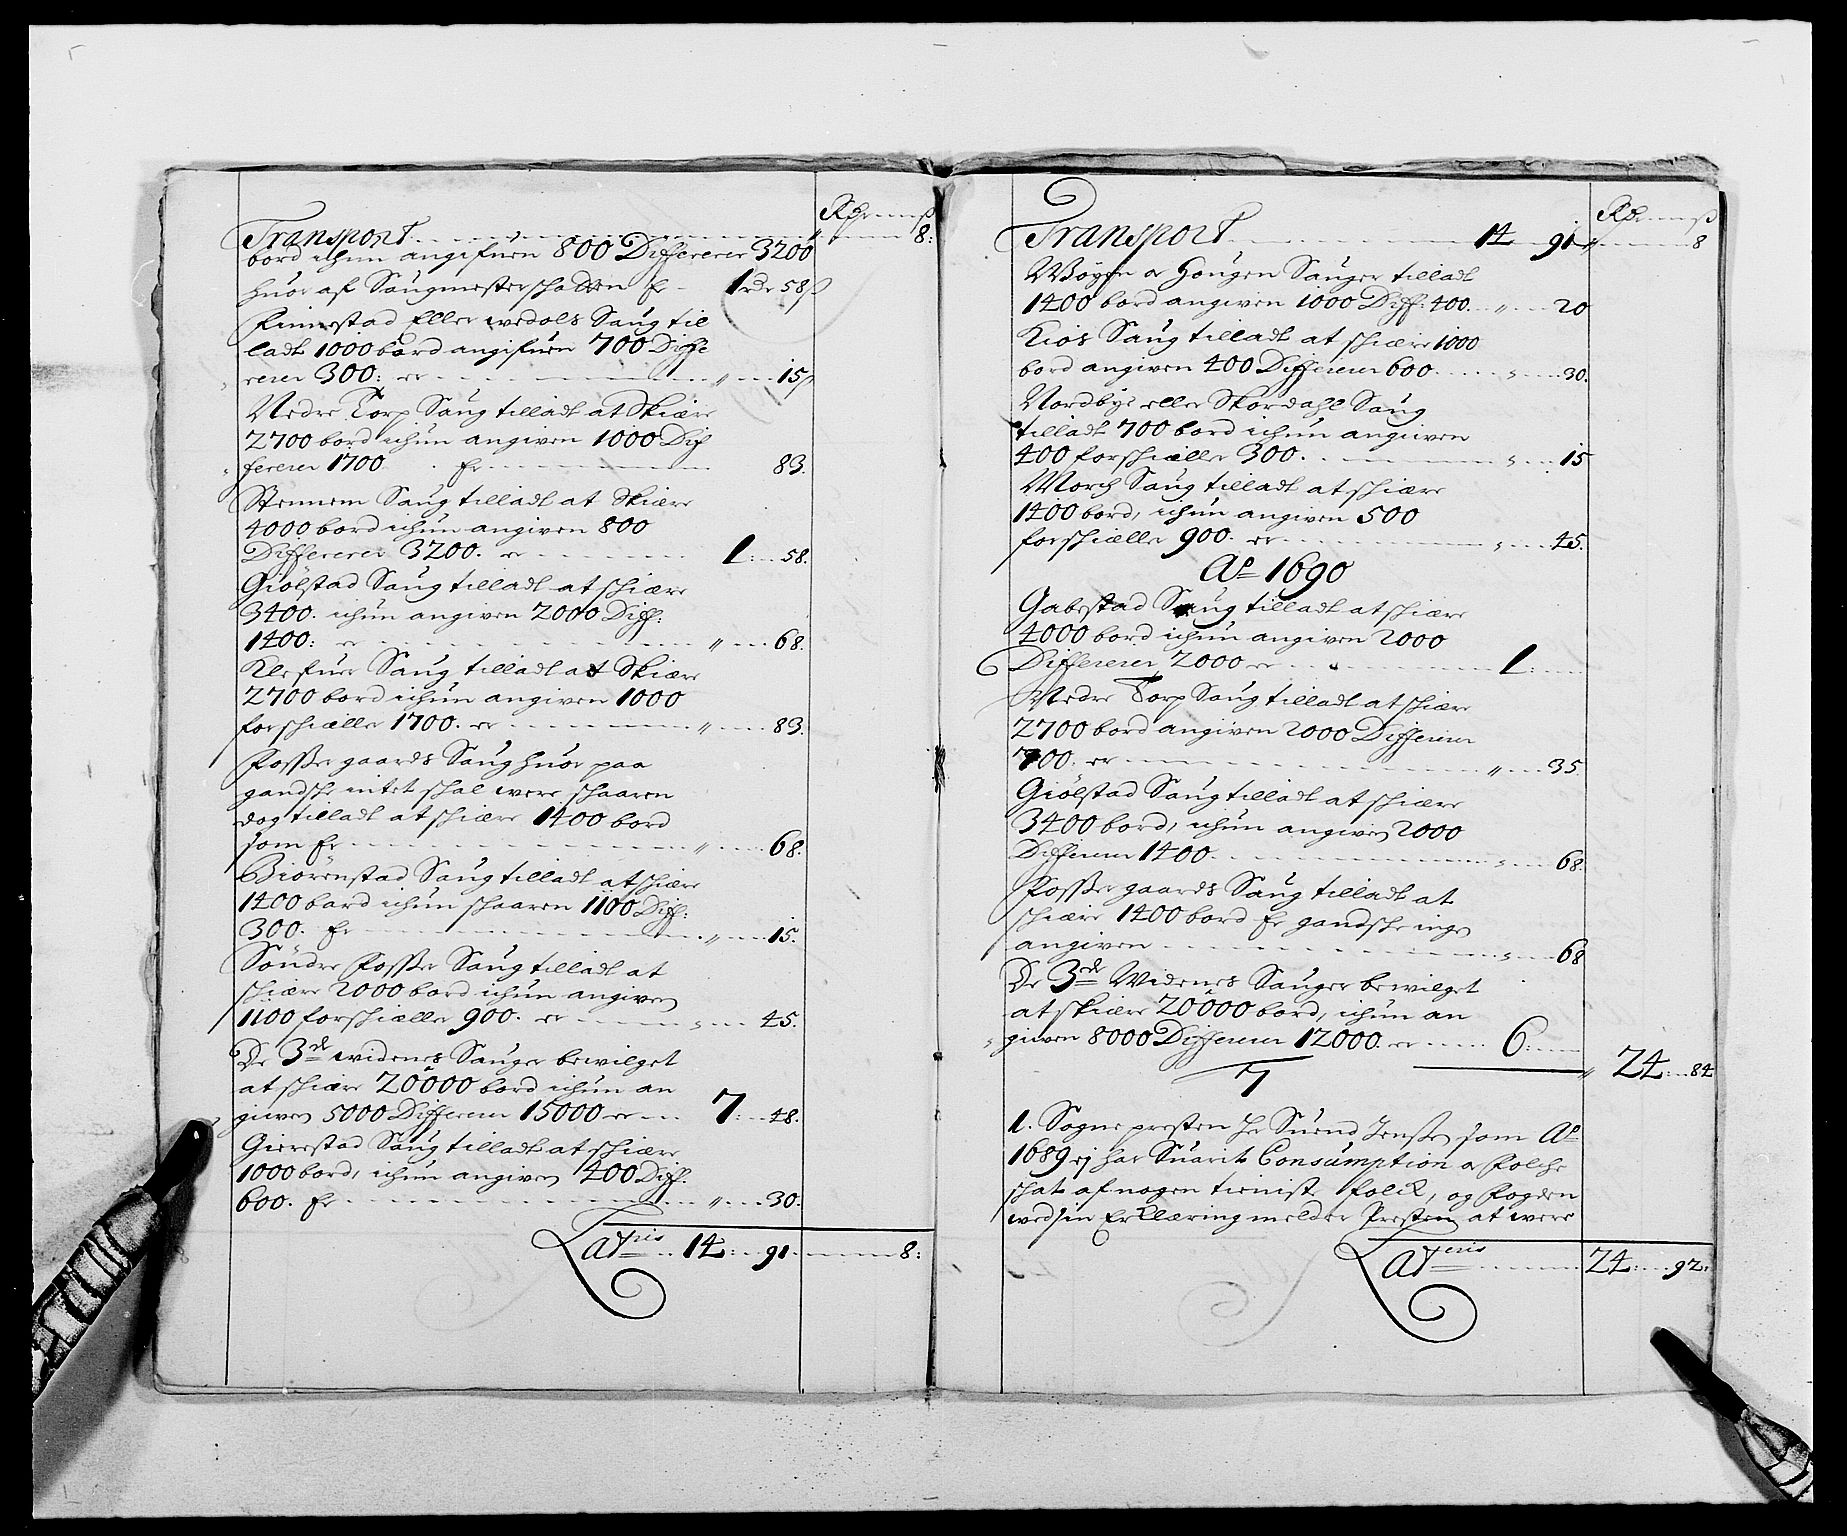 Rdr ß
Transport 8:
bord ichun angifuen 800 Differerer 3200
huor af Saugmester schatten Er 1 rdr 58 ß
Finnestad Eller wedals Saug til
ladt 1000 bord angifuen 700 Diffe
rerer 300: er " 15 ß
Nedre Torp Saug tilladt at Skiære
2700 bord ichun angiven 1000 Dif
fererer 1700 Er 83.
Stennem Saug tilladt at Skiære
4000 bord ichun angiven 800
Differerer 3200. er 1: 58.
Giölstad Saug tilladt at schiære
3400. ichun angiven 2000 Diff:
1400: er " 68.
Klefuer Saug tilladt at Skiære
2700 bord ichun angiven 1000
forschielle 1700. er " 83.
Fosser gaards Saug huor paa
gandsche intet schal were schaaren
dog tilladt at schiære 1400 bord
som Er " 68.
Biörenstad Saug tilladt at schiære
1400 bord ichun schaaren 1100 Diff:
300. Er " 15.
Söndre Fosser Saug tilladt at
schiære 2000 bord ichun angiven
1100 forschielle 900. er " 45.
De 3de widenes Sauger bewilget
at schiære 20000 bord ichun an
given 5000 Differerer 15000 er 7: 48.
Gierestad Saug tilladt at schiære
1000 bord, ichun angiven 400 Diff:
600. Er " 30.
Lateris 14: 91. 8:
Rdr ß
Transport 14 91 " 8
Wöyen og Hougen Sauger tilladt
1400 bord angiven 1000 Diff: 400. " 20
Kiös Saug tilladt at schiære 1000
bord angiven 400 Differerer 600 " 30.
Nordbye eller Skordahl Saug
tilladt 700 bord ichun angiven
400 forschielle 300. " 15
Morch Saug tilladt at schiære
1400 bord, ichun angiven 500
forschielle 900. er " 45.
Ao 1690
Gabestad Saug tilladt at schiære
4000 bord ichun angiven 2000
Differerer 2000 er 1:
Nedre Torp Saug tilladt at schiære
2700 bord angiven 2000 Differerer
700: er " 35.
Giölstad Saug tilladt at schiære
3400 bord, ichun angiven 2000
Differerer 1400. " 68.
Fosser gaards Saug tilladt at
schiære 1400 bord Er gandsche inge
angiven " 68
De 3de Widenes Sauger bewilget
at skiære 20000 bord, ichun an
given 8000 Differerer 12000. er 6:
" 24: 84
7
1. Sogne presten Hr Suend Jenssen som Ao
1689 ej har Suarit Consumption og Folche
schat af nogen tieniste folck, og Fogden
wed sin Erklæring melder Presten at were
Lateris 24: 92: